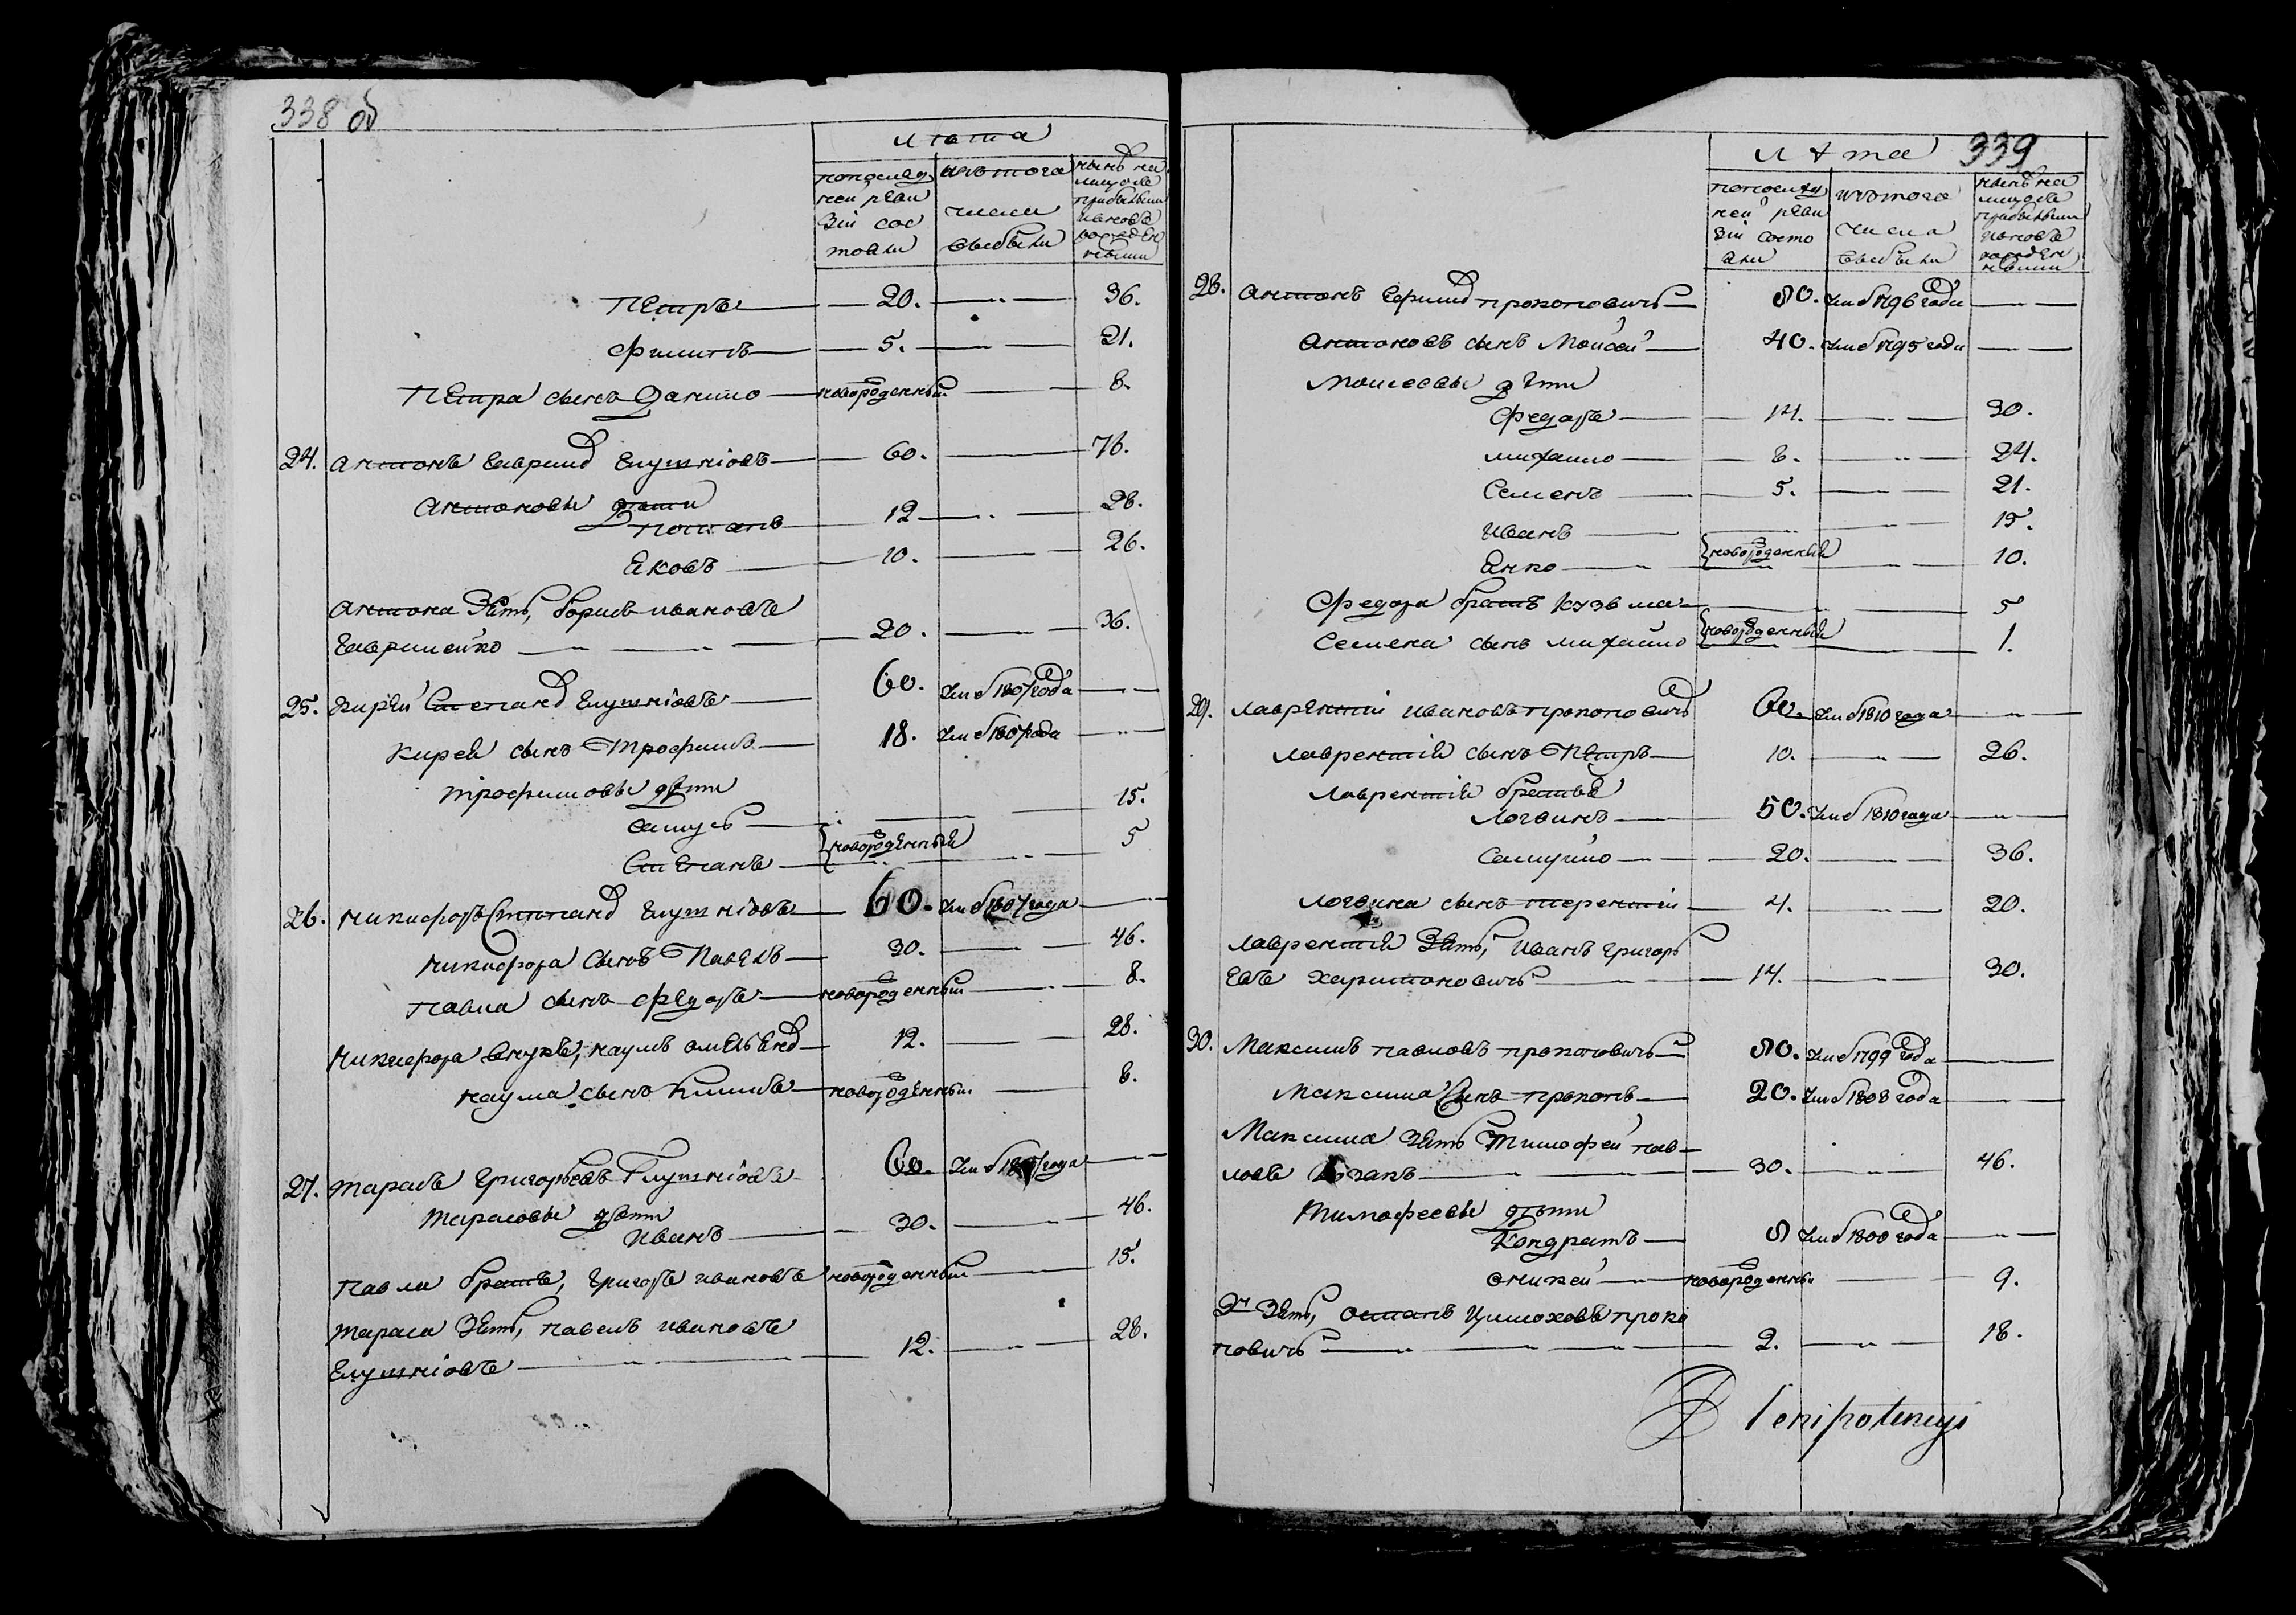 338 об
лѣта
попослед изътога нынѣ на
ней реви числа лицо съ
зіи сос выбыли прибывшими
тояли и вновь рожденными
Петръ — 20. — 36.
Филипъ — 5. — 21.
Петра сынъ Данило — новорожденный — 8.
24. Антонъ Гаврилов Глушнiовъ — 60. — 76.
Антоновы дети
Потапъ — 12 — 28.
Яковъ — 10. — 26.
Антона Зять, Борисъ Ивановъ
Гавриленко — 20. — 36.
25. Кирей Степанов Глушнiовъ — 60. Умеръ 1807 года —
Кирея сынъ Трофимъ — 18. Умеръ 1807 года —
Трофимовы дѣти
— 15.
{новорожденный
Степанъ — 5
26. Никифоръ Степанов Глушнiовъ — 60. Умеръ 1807 года —
Никифора Сынъ Павелъ — 30. — 46.
Павла сынъ Федоръ — новорожденный — 8.
Никифора Внукъ, Наумъ — 12. — 28.
Наума сынъ Климъ — новорожденный — 8.
27. Тарасъ Григорьевъ Глушнiовъ 60. Умеръ года —
Тарасовы дѣти
Иванъ — 30. — 46.
Павла братъ, Григоръ Ивановъ новорожденный — 15.
Тараса Зять, Павелъ Ивановъ
Глушнiовъ — 12. — 28.
339
лѣта
попослед изътога нынѣ на
ней реви числа лицо съ
зіи состо выбыли прибывшими
яли и вновь рожденными
28. Антонъ Ефимов Прокоповичъ — 80. Умеръ 1796 года —
Антоновъ сынъ Моисей — 40. Умеръ 1795 года —
Моисеевы дѣти
Федоръ — 14. — 30.
Михайло — 8. — 24.
Семенъ — 5. — 21.
Иванъ — 15.
{новорожденный
Янко — 10.
Федора братъ Кузьма — 5
{новорожденный
Семена сынъ Михайло — 1.
29. Лаврентій Ивановъ Прокоповичъ 60. Умеръ 1810 года —
Лаврентій сынъ Петръ — 10. — 26.
Лаврентій братья
Логвинъ — 50. Умеръ 1810 года —
Самуйло — 20. — 36.
Логвина сынъ Терентій — 4. — 20.
Лаврентій Зять, Иванъ Григорь
евъ Харитоновичъ — 14. — 30.
30. Максимъ Павловъ Прокоповичъ — 80. Умеръ 1799 года —
Максима Сынъ Прокопъ — 20. Умеръ 1808 года —
Максима Зять Тимофей Пав
ловъ — 30. — 46.
Тимофеевы дѣти
Кондратъ — 8 Умеръ 1800 года —
Аникей — новорожденный — 9.
Зять, Остапъ Цимоховъ Проко
повичъ — 2. — 18.
Plenipotencyi